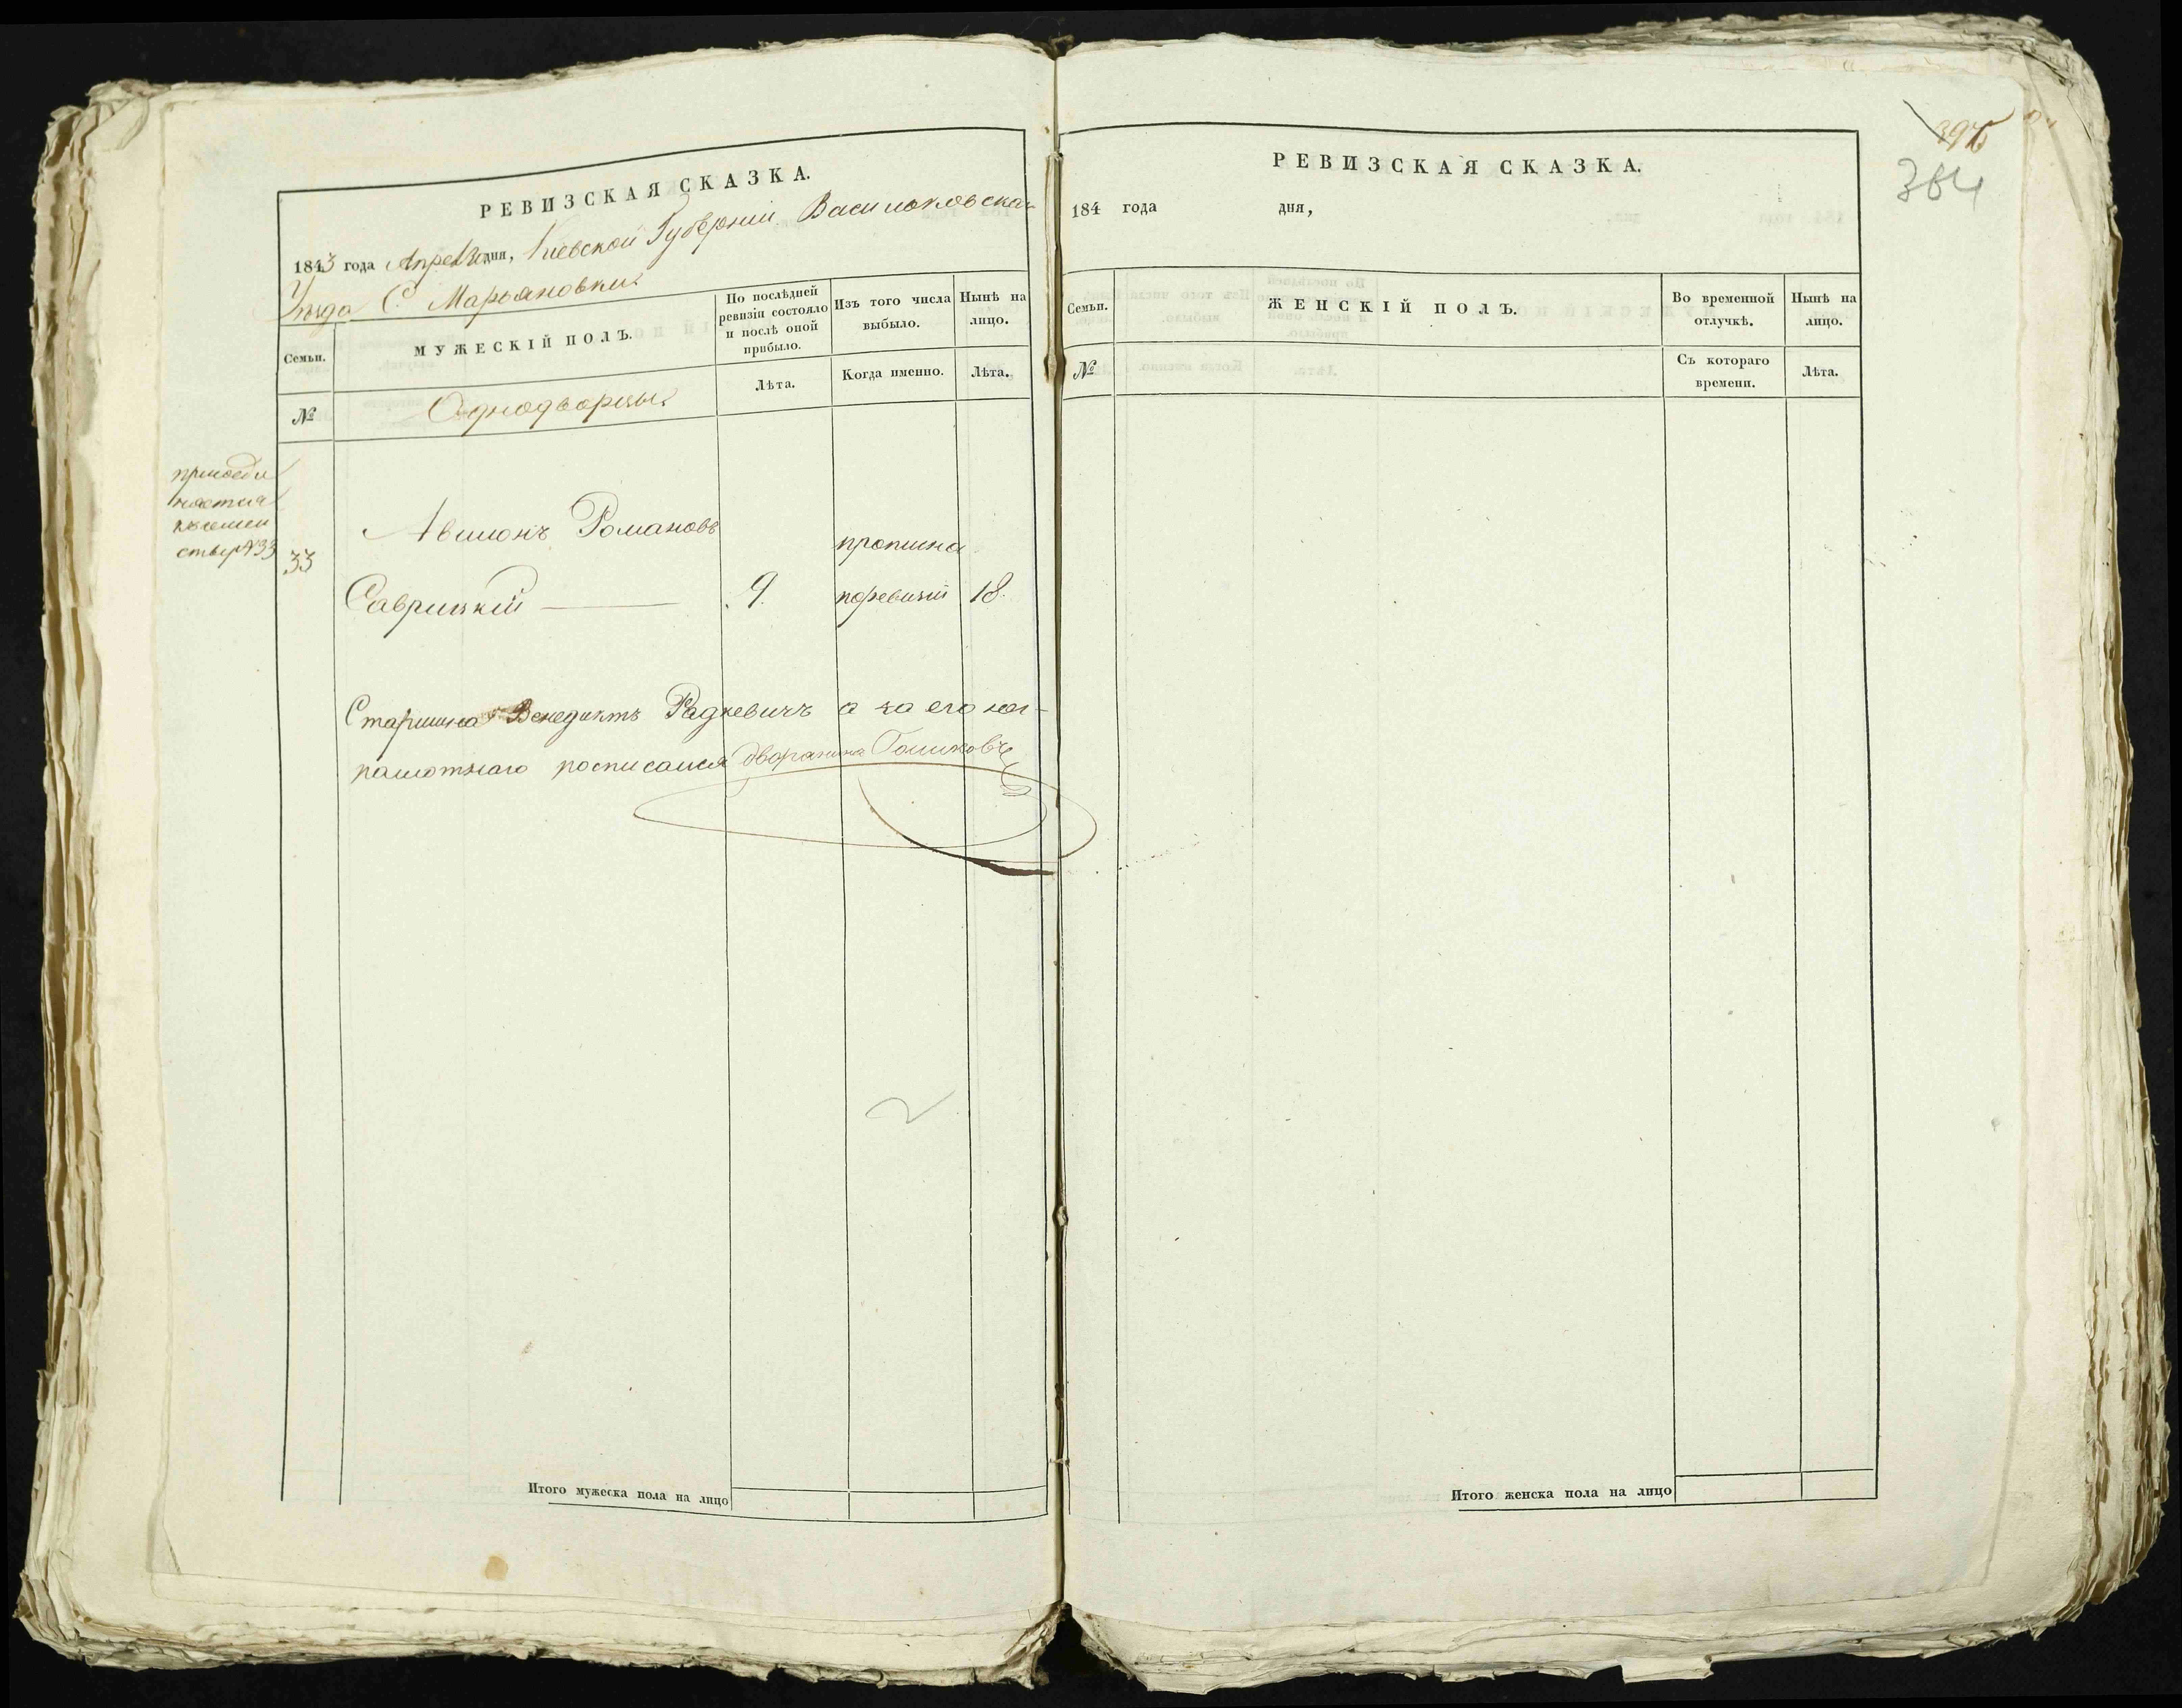 РЕВИЗСКАЯ СКАЗКА.
1843 года Апреля дня, Киевской Губерніи Васильковскаго
Уезда С. Марьяновки
Семьи.
МУЖЕСКІЙ ПОЛЪ.
По послѣдней ревизіи состояло и послѣ оной прибыло.
Изъ того числа выбыло.
Нынѣ на лицо.
№
Однодворцы
Лѣта.
Когда именно.
Лѣта.
33
Романовъ
Саврицкій
9.
18.
Старшина Венедиктъ Радкевичъ а за его не-
грамотнаго росписался дворянинъ
Итого мужеска пола на лицо
РЕВИЗСКАЯ СКАЗКА.
184 года дня,
Семьи.
ЖЕНСКІЙ ПОЛЪ.
Во временной отлучкѣ.
Нынѣ на лицо.
№
Съ котораго времени.
Лѣта.
Итого женска пола на лицо
364